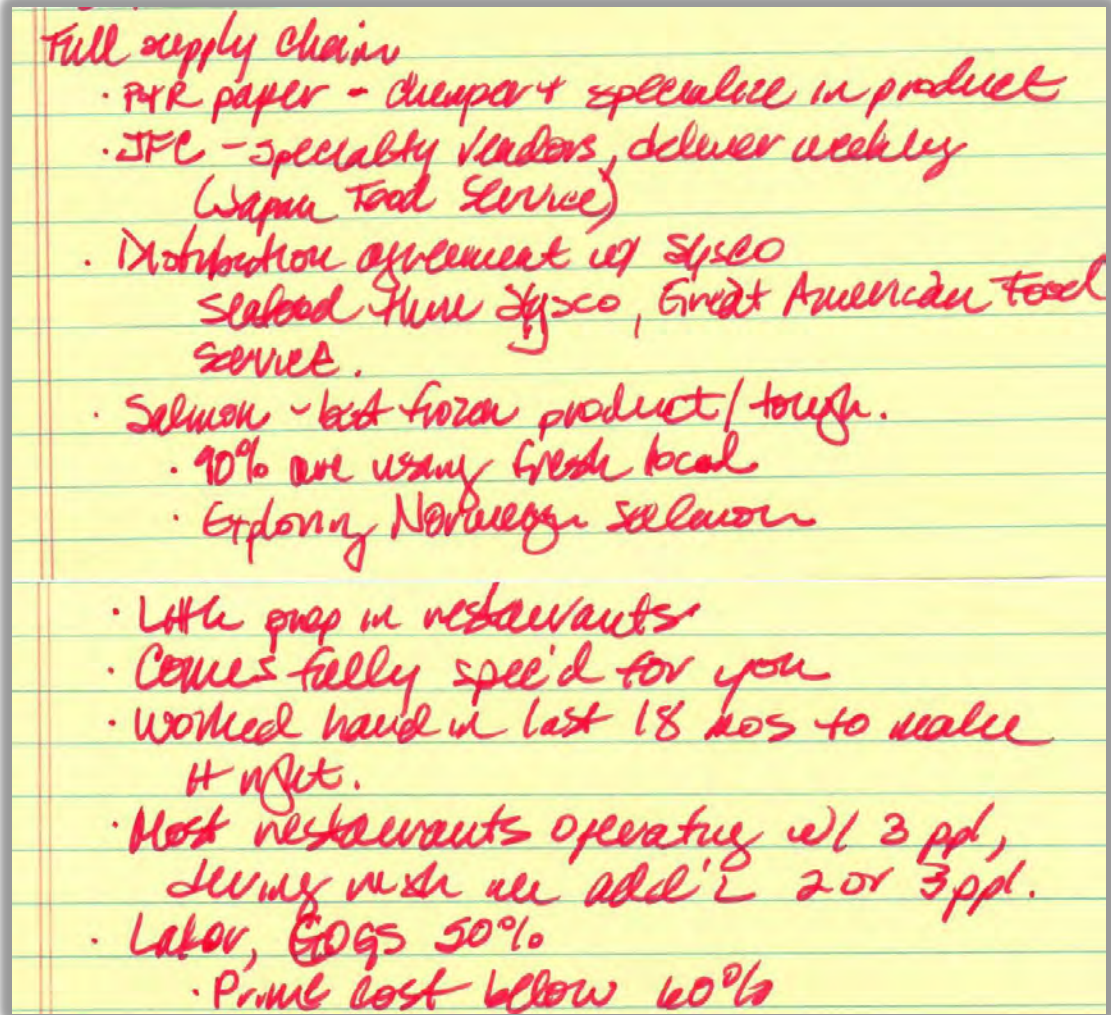 Full supply chain
· P+R paper - cheaper + specialize in product
· JFC - specialty vendors, deliver weekly
(Japan Food Service)
· Distribution agreement w/ Sysco
Seafood thru Sysco, Great American Food
Service.
· Salmon - best frozen product / tough.
· 90% are using fresh local
· Exploring Norwegn salmon
· Little prep in restaurants
· Comes fully spec'd for you
· Worked hard in last 18 mos to make
it right.
· Most restaurants operating w/ 3 ppl,
during rush add'l 2 or 3 ppl.
· Labor, COGS 50%
· Prime cost below 60%